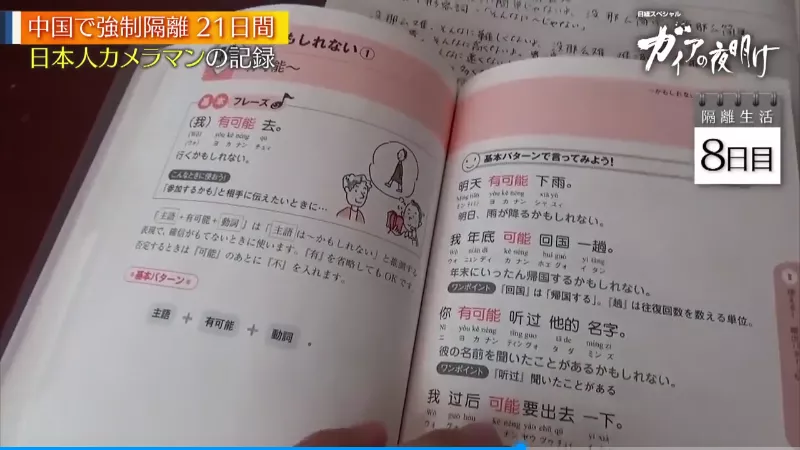 中国で強制隔離 21日間
日本人カメラマンの記録
日経スペシャル
ガイアの夜明け
隔離生活
8日目
もしれない①
可能～
基本フレーズ
(我) 有可能 去。
(Wǒ) yǒu kě néng qù
(ウォ) ヨ カ ナン チュィ
行くかもしれない。
こんなときに使おう!
「参加するかも」と相手に伝えたいときに…
「主語+有可能+動詞」は「主語は~かもしれない」と推測する
表現で、確信がもてないときに使います。「有」を省略してもOKです
否定するときは「可能」のあとに「不」を入れます。
基本パターン
主語 + 有可能 + 動詞 。
~かもしれない
基本パターンで言ってみよう!
明天 有可能 下雨。
Míng tiān yǒu kě néng xià yǔ
ヨ カ ナン シャ ユィ
明日、雨が降るかもしれない。
我 年底 可能 回国 一趟。
Wǒ nián dǐ kě néng huí guó yí tàng
ウォ ニェンディ カ ナン ホェグゥォ イ タン
年末にいったん帰国するかもしれない。
ワンポイント 「回国」は「帰国する」。「趟」は往復回数を数える単位。
你 有可能 听过 他的 名字。
Nǐ yǒu kě néng tīng guo tā de míng zi
ニ ヨ カ ナン ティングゥォ タ ダ ミン ズ
彼の名前を聞いたことがあるかもしれない。
ワンポイント 「听过」聞いたことがある
我 过后 可能 要出去 一下。
Wǒ guò hòu kě néng yào chū qù yí xià